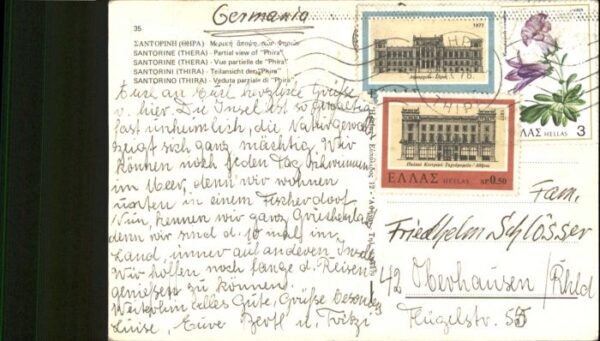 Germania
35
ΣΑΝΤΟΡΙΝΗ (ΘΗΡΑ) - Μερική άποψη των Φηρών
SANTORINE (THERA) - Partial view of "Phira"
SANTORINE (THERA) - Vue partielle de "Phira"
SANTORINI (THIRA) - Teilansicht der "Phira"
SANTORINO (THIRA) - Veduta parziale di "Phira"
herzliche Grüße
v. hier. Die Insel ist so gewaltig
fast unheimlich, die Naturgewalt
zeugt sich ganz mächtig. Wir
können noch jeden Tag schwimmen
im Meer, denn wir wohnen
unten in einem Fischerdorf
Nun, kennen wir ganz Griechenla
denn wir sind d. 10 mal im
Land, immer auf anderen Inseln
Wir hoffen noch lange d. Reisen
genießen zu können.
Weiterhin alles Gute, Grüße besonders
Luise, Eure Berti u. Fritzi
1977
ΕΛΛΑΣ HELLAS 3
ΕΛΛΑΣ HELLAS ΔΡ 0.50
Fam.
Friedhelm Schlösser
42 Oberhausen/Rhld
Hügelstr. 55